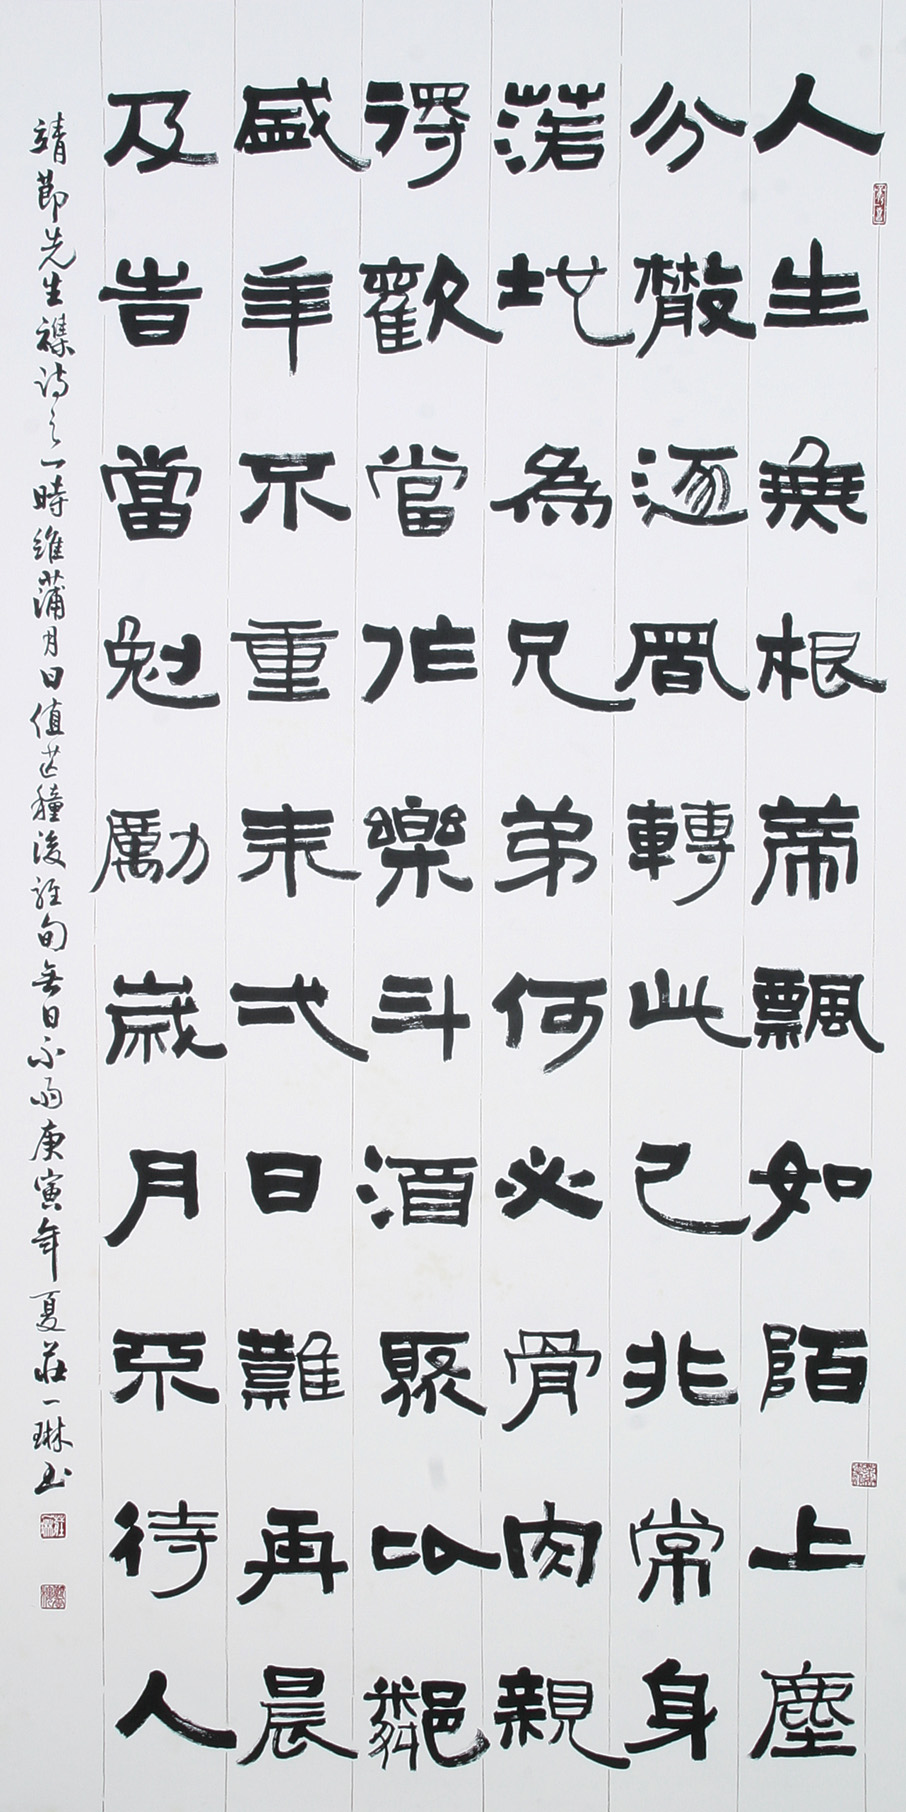 人生無根蒂飄如陌上塵
分散逐風轉此已非常身
落地為兄弟何必骨肉親
得歡當作樂斗酒聚以鄰
盛年不重来弌日難再晨
及旹當勉勵歲月不待人
靖節先生襍詩之一時維蒲月日值芒種後經旬無日不雨庚寅年夏莊一琳书